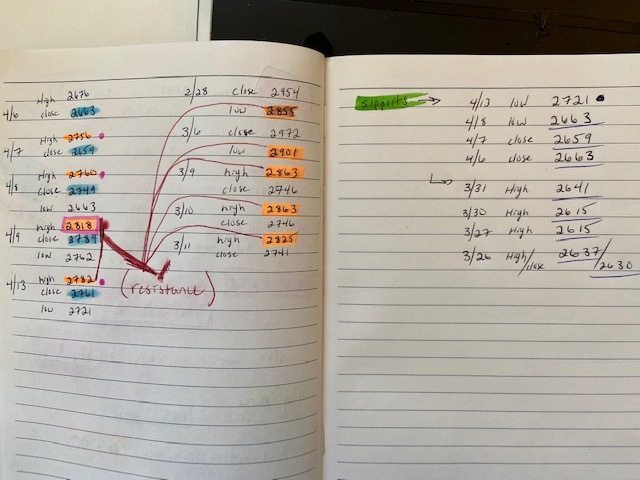 High 2676
4/6 close 2663
High 2756
4/7 close 2659
High 2760
4/8 close 2749
low 2663
high 2818
4/9 close 2789
low 2762
4/13 high 2782
close 2761
low 2721
2/28 close 2954
low 2855
3/6 close 2972
low 2901
3/9 high 2863
close 2746
3/10 high 2863
close 2746
3/11 high 2825
close 2741
(resistance)
Supports → 4/13 low 2721
4/8 low 2663
4/7 close 2659
4/6 close 2663
3/31 High 2641
3/30 High 2615
3/27 High 2615
3/26 High/close 2637/2630